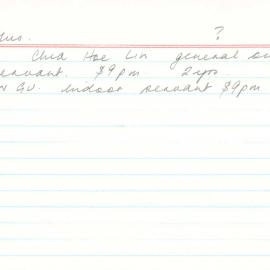 ?
Chia Hoe Lin general
servant. $9 pm 2 yrs
indoor servant $9 pm